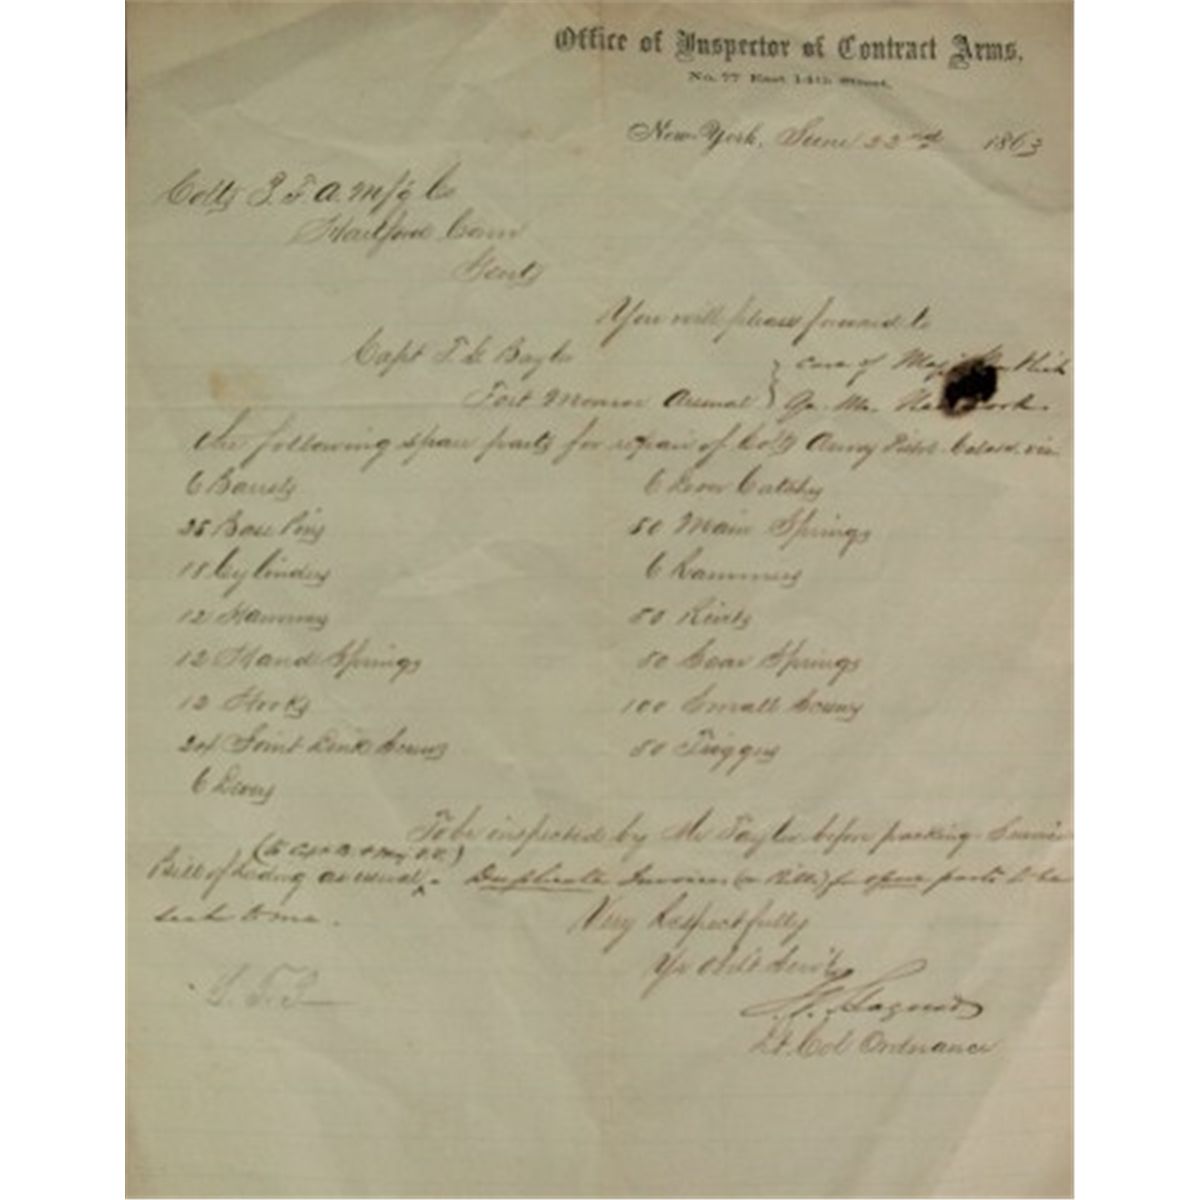 Office of Inspector of Contract Arms.
No. 77 East 14th Street.
New-York, June 22nd 1863
Colts P. F. A. Mfg Co
Hartford Conn
Gents
You will please forward to
Capt T. G. Baylor care of Maj
Fort Monroe Arsenal Qr. Mr. New York.
the following spare parts for repair of Colts Army Pistol. Cal. viz.
6 Barrels 6 Lever Catches
25 Base Pins 50 Main Springs
18 Cylinders 6 Rammers
12 Hammers 50 Rivets
12 Hand Springs 50 Sear Springs
12 Hooks 100 Small Screws
24 Joint Link Screws 50 Triggers
6 Levers
To be inspected by Mr Taylor before packing.
(to Capt B. &
Bill of Lading as usual. Duplicate Invoices (or Bills) for spare parts to be
sent to me.
Very Respectfully
Yr Obdt Servt
Lt. Col Ordnance